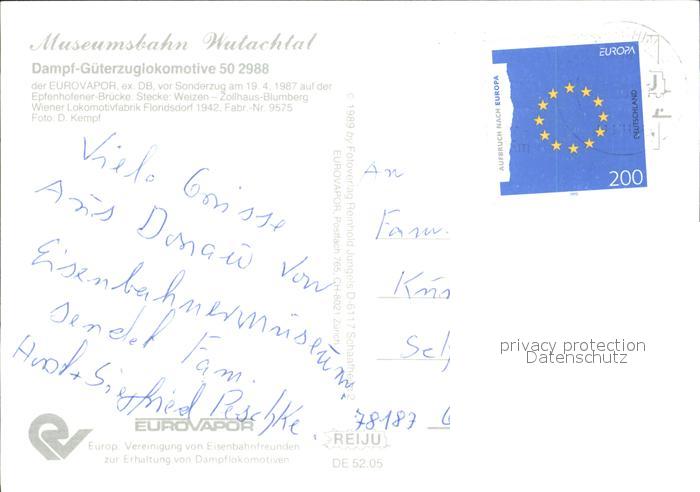 Museumsbahn Wutachtal
Dampf-Güterzuglokomotive 50 2988
der EUROVAPOR, ex. DB, vor Sonderzug am 19. 4. 1987 auf der
Epfenhofener-Brücke. Stecke: Weizen – Zollhaus-Blumberg
Wiener Lokomotivfabrik Floridsdorf 1942, Fabr.-Nr. 9575
Foto: D. Kempf
Viele Grüsse
Aus Donau von
Eisenbahnermuseum
sendet Fam.
Horst + Siegfried Peschke.
EUROVAPOR
Europ. Vereinigung von Eisenbahnfreunden
zur Erhaltung von Dampflokomotiven
© 1989 by Fotoverlag Reinhold
EUROVAPOR, Postfach 765, CH-8021 Zürich
REIJU
DE 52.05
EUROPA
AUFBRUCH NACH EUROPA
DEUTSCHLAND
200
An
Fam.
78187
privacy protection
Datenschutz